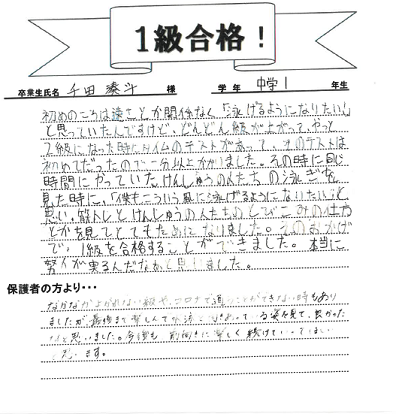 1級合格！
卒業生氏名 千田 湊斗 様 学年 中学1 年生
初めのころは速さとか関係なく「泳げるようになりたい!」
と思っていたんですけど、どんどん級が上がって、やっと
1級になった時にタイムのテストがあって、そのテストは
初めてだったので二分以上かかりました。その時に同じ
時間にやっていたけんしゅうの人たちの泳ぎを
見た時に、「僕もこういう風に泳げるようになりたい」と
思い、筋トレとけんしゅうの人たちのとびこみの仕方
とかを見てとてもためになりました。そのおかげ
で、1級を合格することができました。本当に
努力が実るんだなあと思いました。
保護者の方より・・・
なかなか上がれない級や、コロナで通うことができない時もあり
ましたが、最後まで楽しんで水泳と
姿を見て、良かった
なと思いました。今後も前向きに楽しく続けていってほしい
思います。